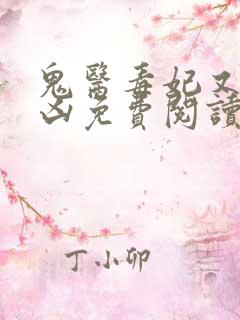 鬼醫毒妃又
凶免費閱讀
丁小卯